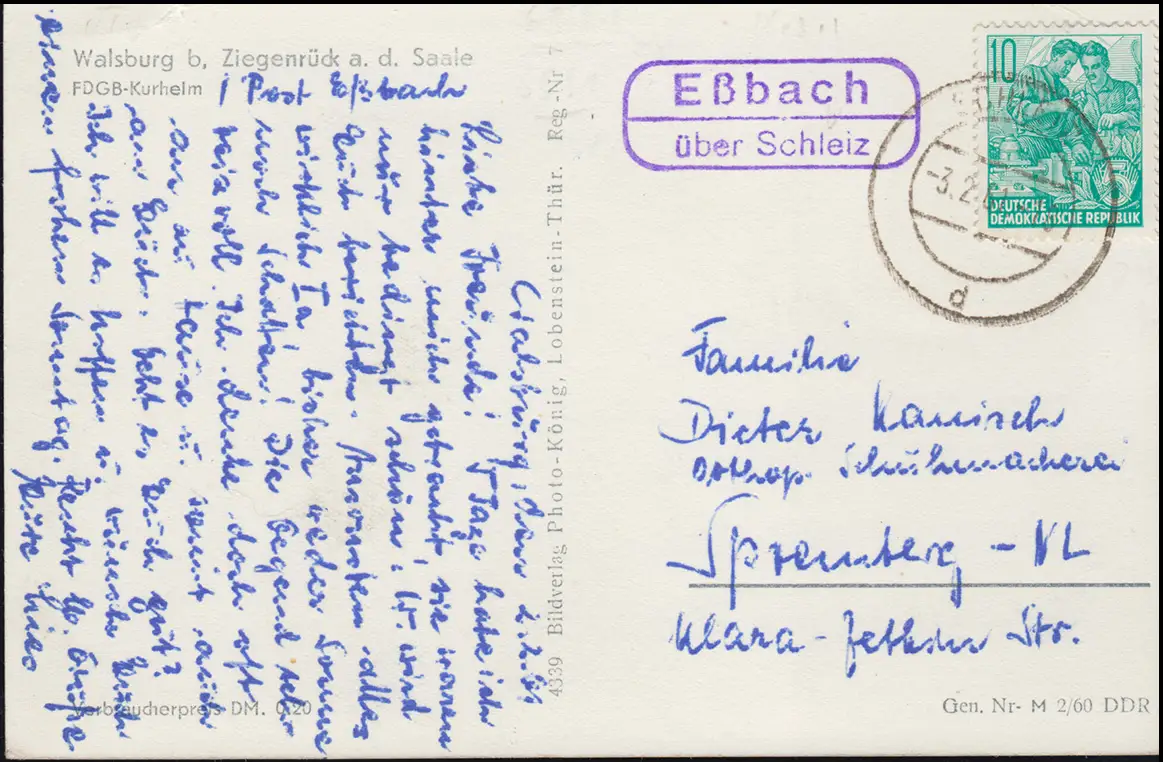 Walsburg b, Ziegenrück a. d. Saale
FDGB-Kurheim
/ Post Eßbach
Walsburg, den 2.2.61
Liebe Freunde! 5 Tage habe ich
hinter mich gebracht, sie waren
nur bedingt schön. wird
Euch berichten. Ansonsten alles
wirklich Ia bisher weder Sonne
noch Schatten! Die Gegend sehr
reizvoll. Ich denke doch oft
an zu Hause u. somit auch
an Euch. Geht es Euch gut?
Ich will es hoffen u. wünsche Euch
einen frohen Sonntag. Recht lb. Grüße
Verbraucherpreis DM. 0,20
4339 Bildverlag Photo-König, Lobenstein-Thür. Reg-Nr 7
Eßbach
über Schleiz
10
DEUTSCHE
DEMOKRATISCHE REPUBLIK
5
3.2.61
d
Familie
Dieter Kanisch
Orthop. Schuhmacherei
Spremberg - NL
Klara-Zetkin Str.
Gen. Nr- M 2/60 DDR